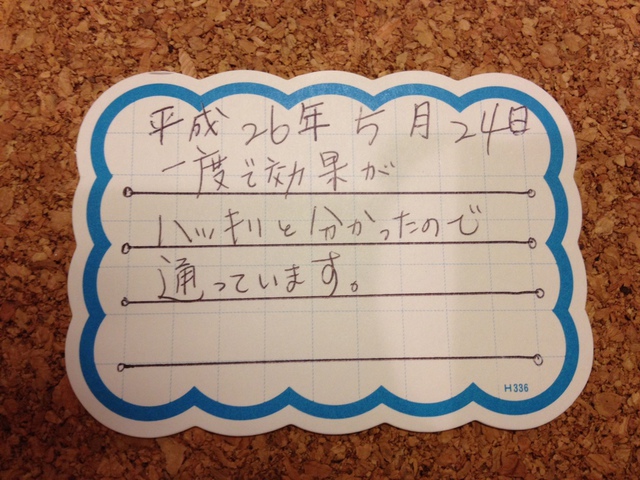 平成26年5月24日
一度で効果が
ハッキリと分かったので
通っています。
H336